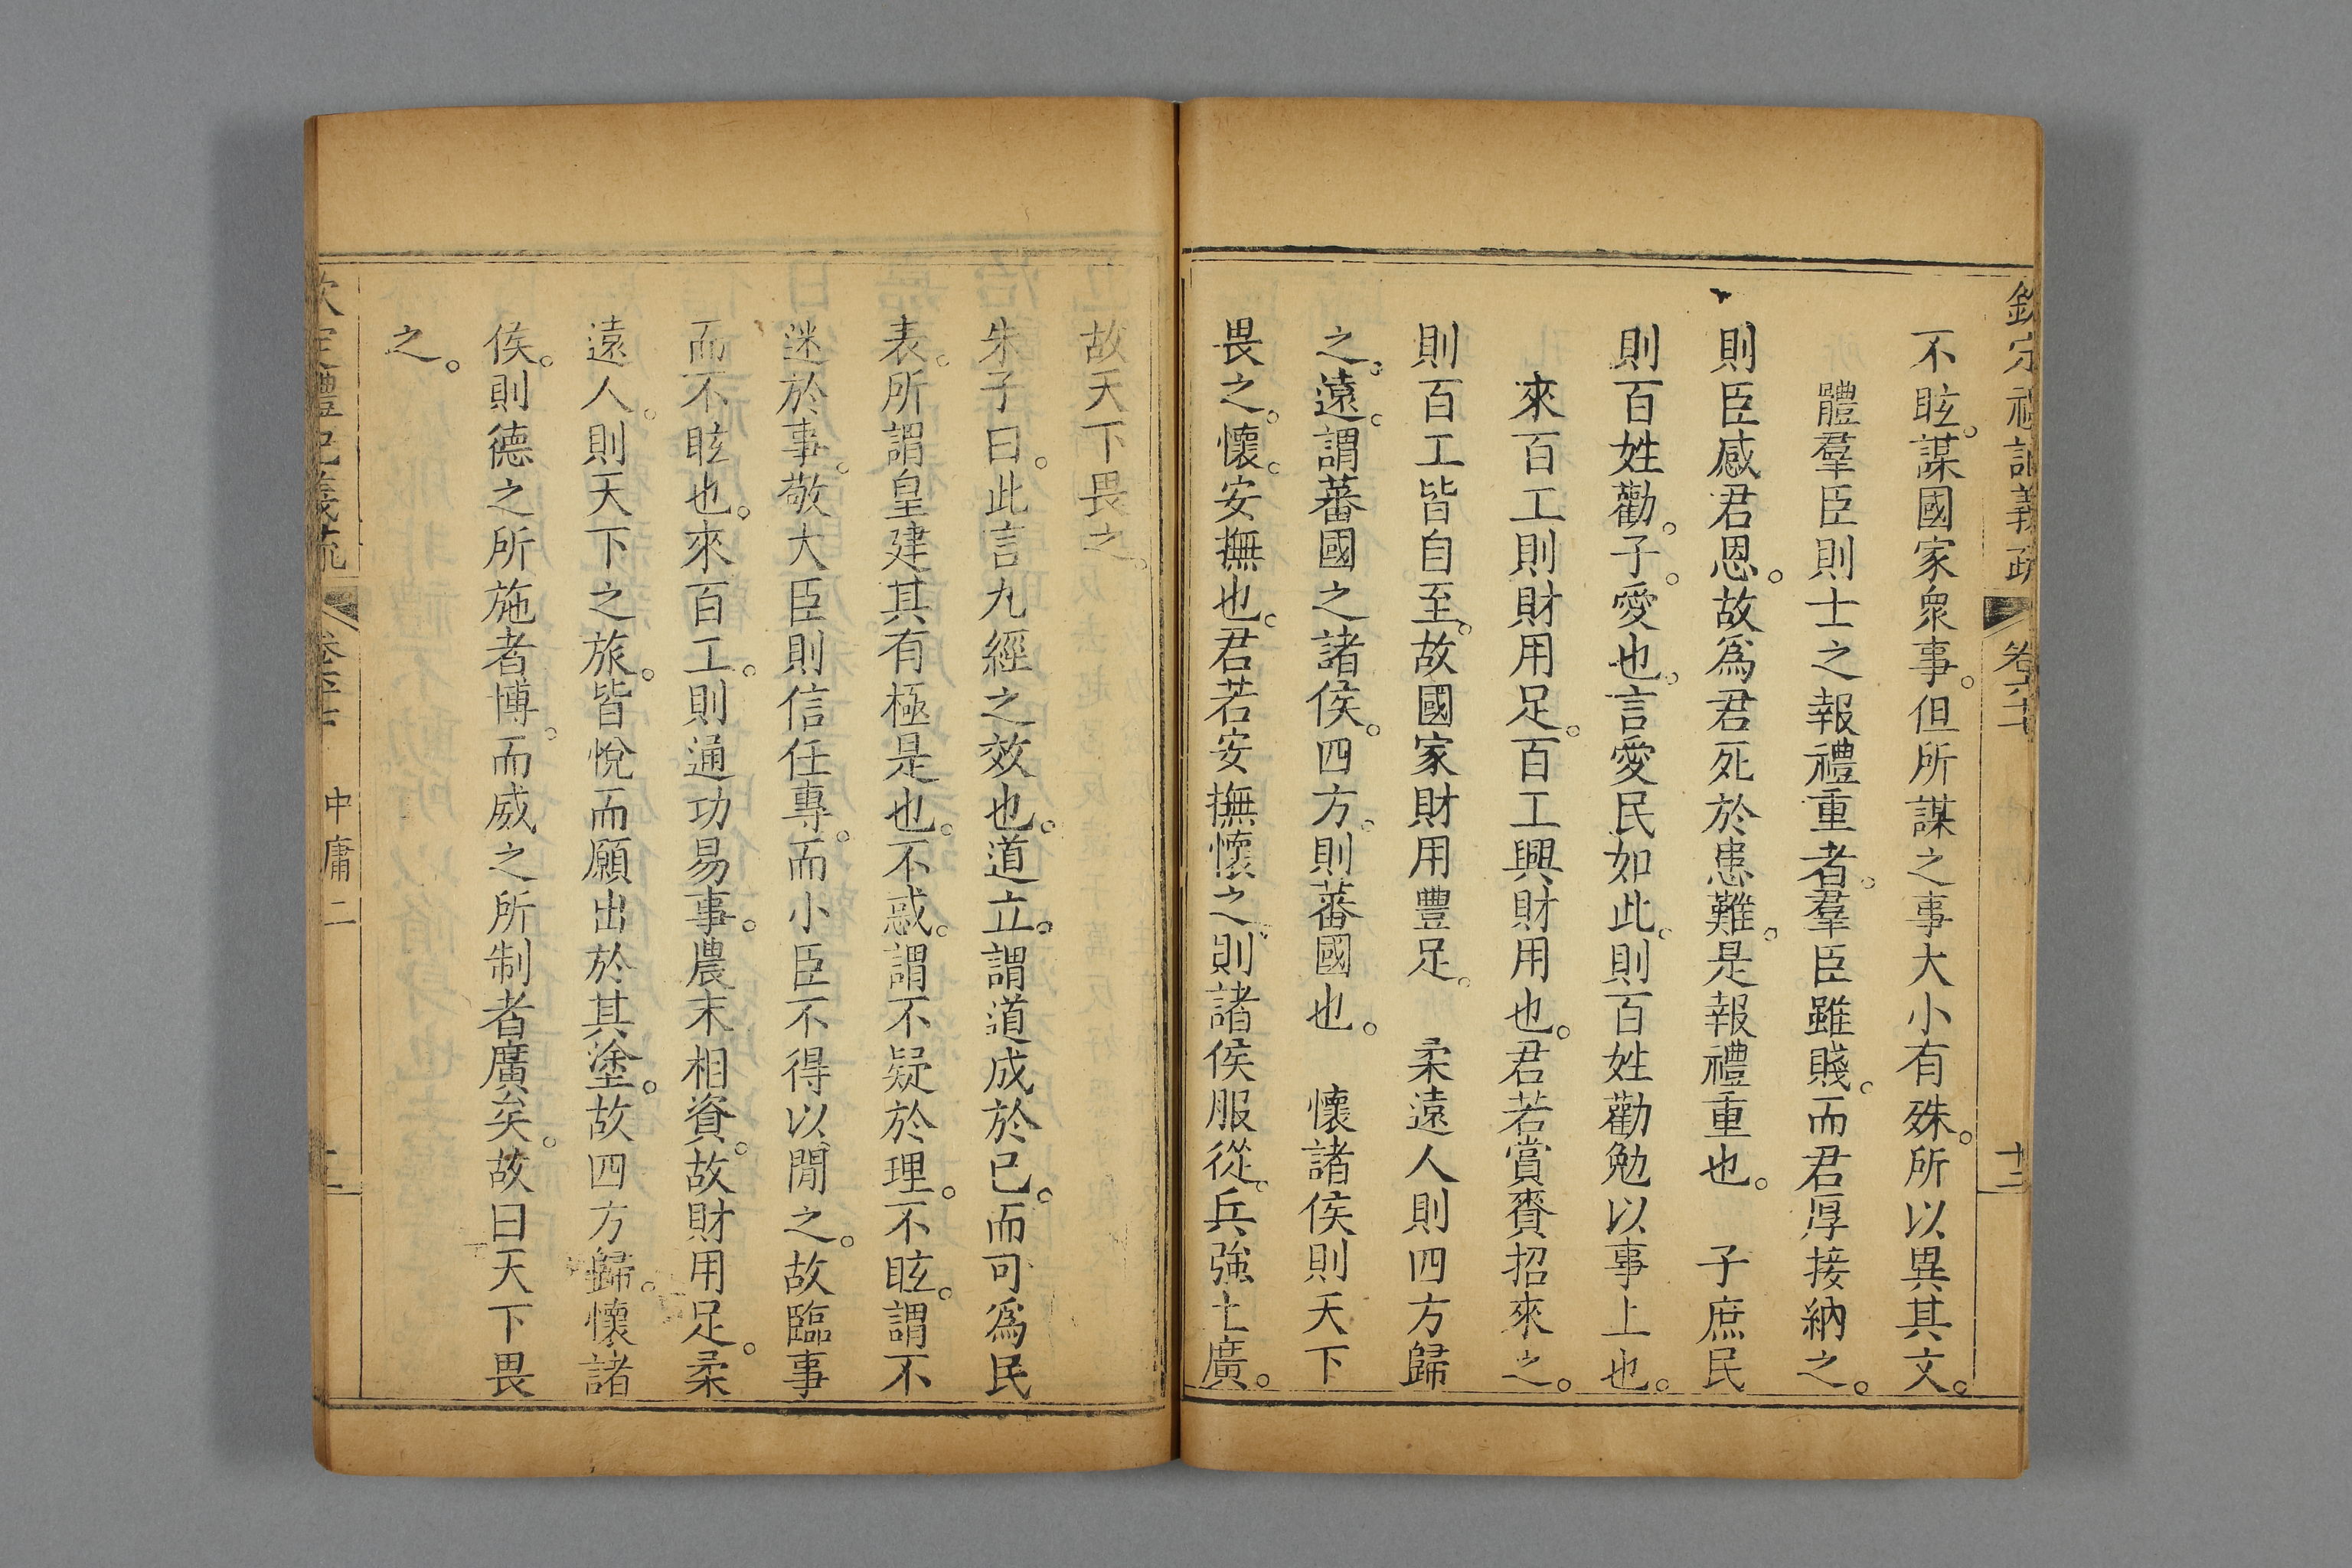 欽定禮記義疏 卷六十七 十三
不眩。謀國家衆事。但所謀之事大小有殊。所以異其文。
體羣臣則士之報禮重者。羣臣雖賤。而君厚接納之。
則臣感君恩。故爲君死於患難。是報禮重也。 子庶民
則百姓勸。子。愛也。言愛民如此。則百姓勸勉以事上也。
來百工則財用足。百工興財用也。君若賞賚招來之。
則百工皆自至。故國家財用豐足。 柔遠人則四方歸
之。遠。謂蕃國之諸侯。四方。則蕃國也。 懷諸侯則天下
畏之。懷。安撫也。君若安撫懷之。則諸侯服從。兵強土廣。
故天下畏之。
朱子曰。此言九經之效也。道立。謂道成於已。而可爲民
表。所謂皇建其有極是也。不惑。謂不疑於理。不眩。謂不
迷於事。敬大臣則信任專。而小臣不得以閒之。故臨事
而不眩也。來百工。則通功易事。農末相資。故財用足。柔
遠人。則天下之旅。皆悅而願出於其塗。故四方歸。懷諸
侯。則德之所施者博。而威之所制者廣矣。故曰天下畏
之。
中庸二